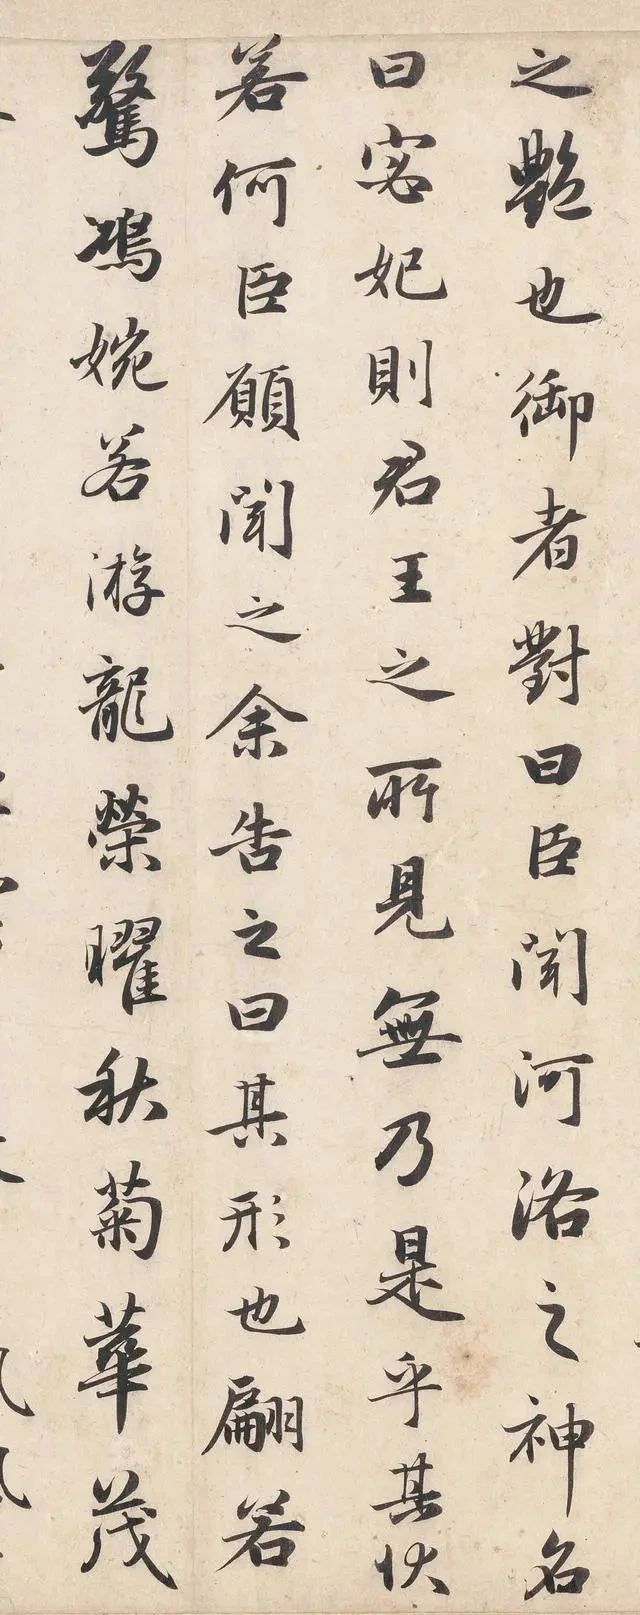 之艷也御者對曰臣聞河洛之神名
曰宓妃則君王之所見無乃是乎其狀
若何臣願聞之余告之曰其形也翩若
驚鴻婉若游龍榮曜秋菊華茂